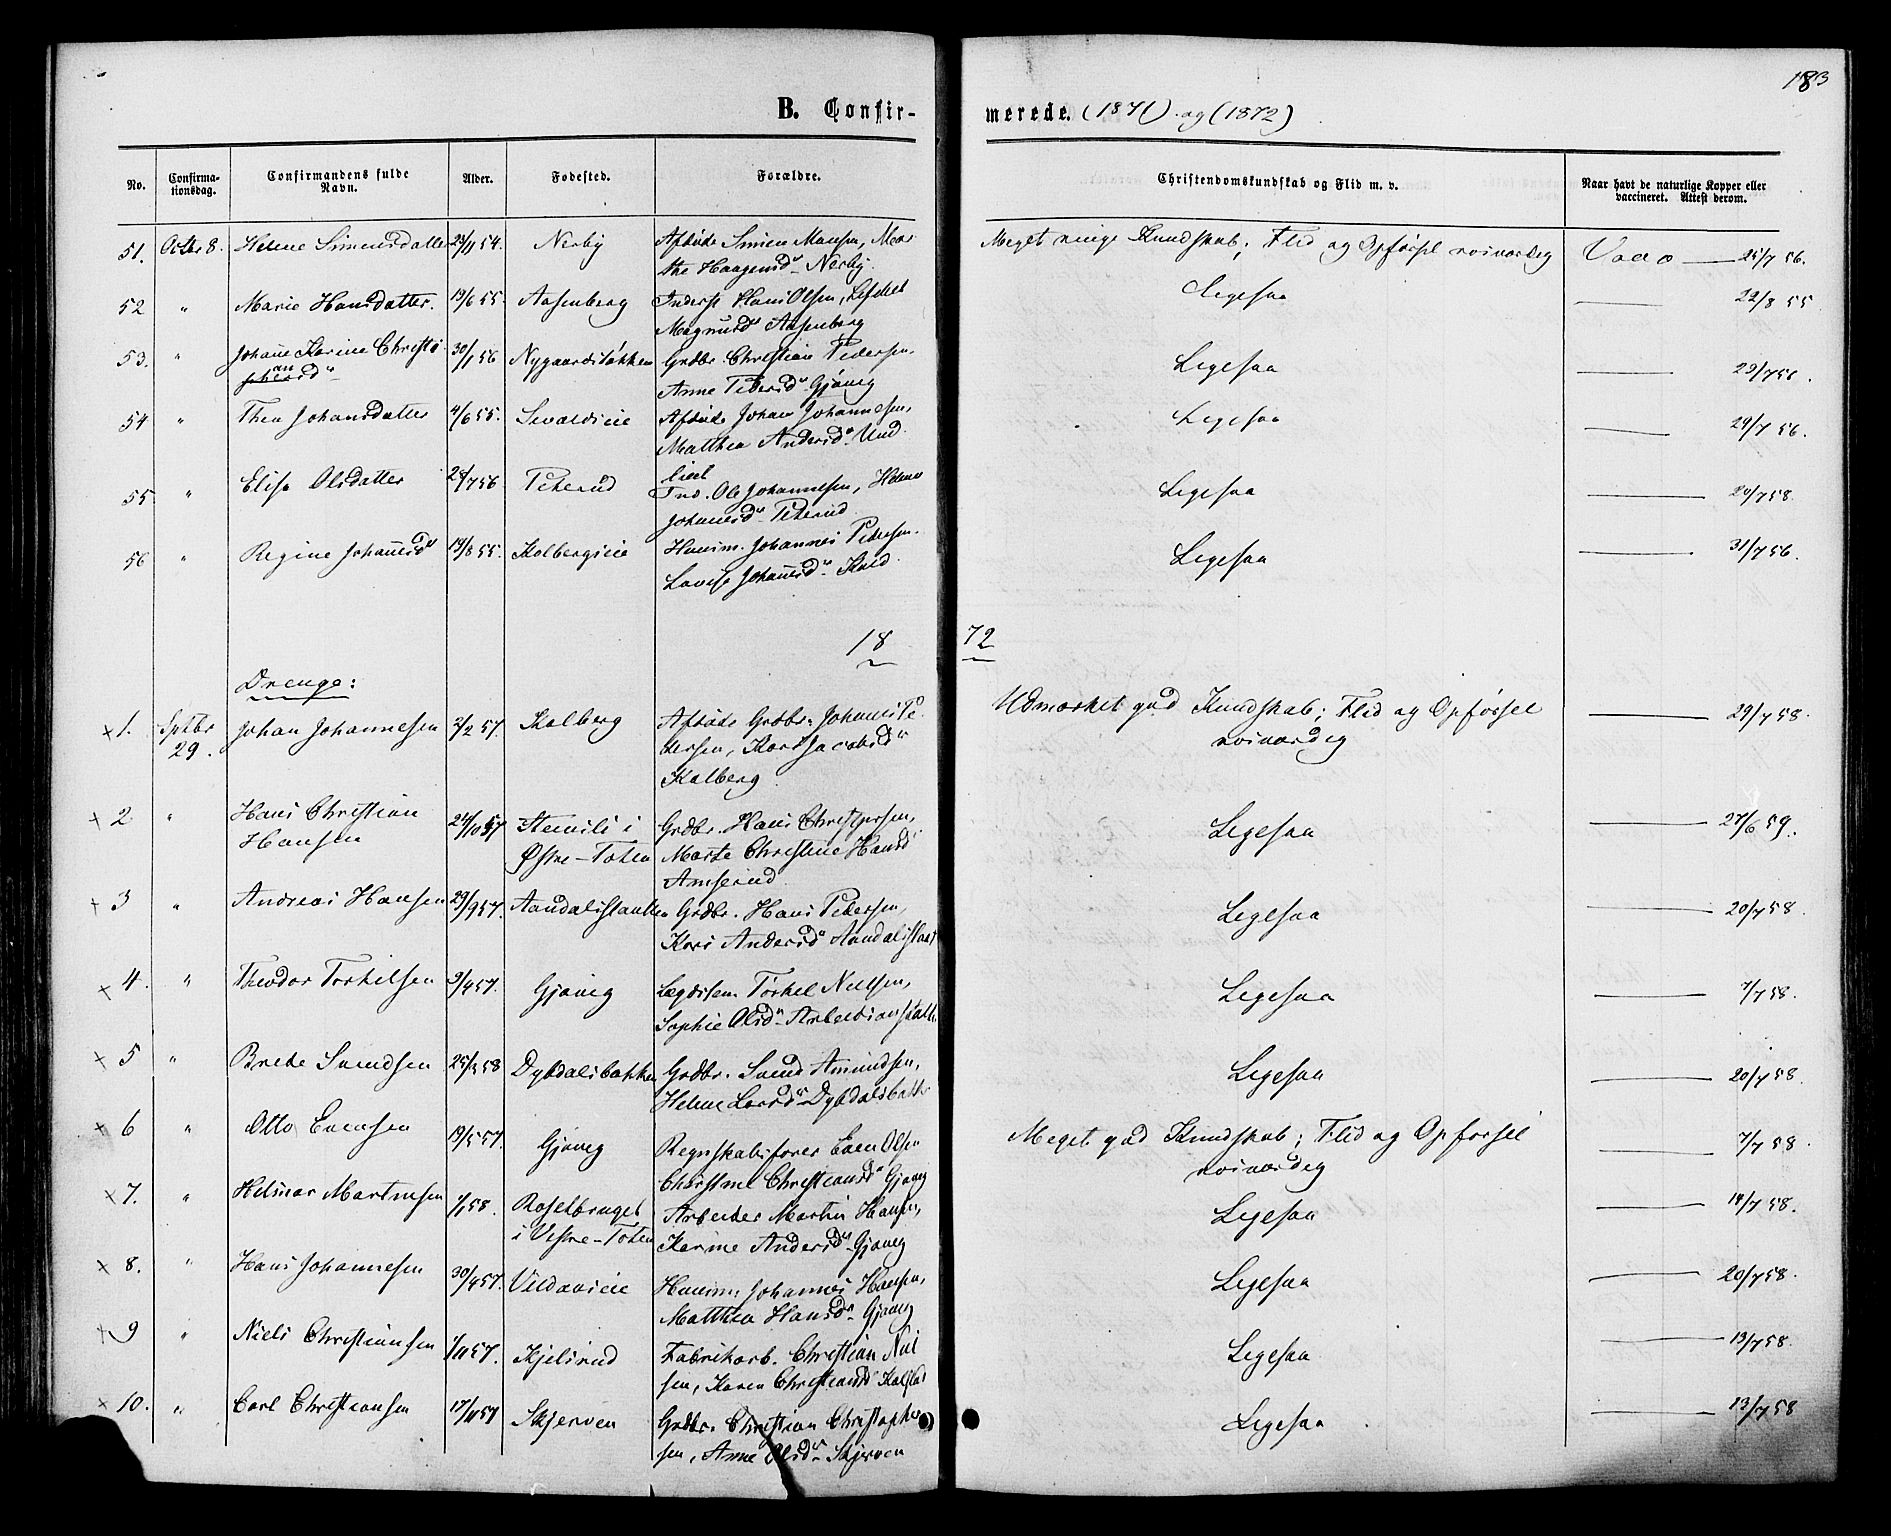 183
B. Confirmerede. (1871) og (1872)
No. Confirmationsdag. Confirmandens fulde Navn. Alder. Fødested. Forældre. Christendomskundskab og Flid m. v. Naar havt de naturlige Kopper eller vaccineret. Attest derom.
51. Octbr 8. Helene Simensdatter 23/11 54. Nerby Afdøde Simen Monsen, Mar
the Haagensd. Nerby. Meget ringe Kundskab; Flid og Opførsel roisværdig Vacc — 25/7 56.
52 " Marie Hansdatter. 19/6 55. Aasenberg Inderst Hans Olsen, Lisbet
Magnusd Aasenberg Ligesaa — 22/8 55
53. " Johane Karine Christi
and 30/1 56 Nygaardsløkken Grdbr. Christian Pedersen,
Anne Pedersd Gjøvig Ligesaa — 29/7 56.
54 " Thea Johansdatter 4/6 55. Sivaldseie Afdøde Johan Johannesen,
Matthea Andersd. Und
lied Ligesaa — 29/7 56.
55 " Elise Olsdatter 28/7 56 Peterud Ind. Ole Johannesen, Helene
Johanesd. Peterud Ligesaa — 20/7 58.
56 " Regine Johanesd 19/8 55. Kolbergseie Huusm. Johannes Petersen.
Lovise Johanesd. Kold. Ligesaa — 31/7 56.
18 72
Drenge:
x 1. Sptbr
29. Johan Johannesen 2/2 57. Kolberg Afdøde Grdbr. Johanes Pe
dersen, Kari Jacobsd
Kolberg Udmærket god Kundskab; Flid og Opførsel
roisværdig — 29/7 58.
x 2 " Hans Christian
Hansen 24/10 57 Stensli i
Østre-Toten Grdbr. Hans Christersen,
Marte Christine Hansd
Amserud Ligesaa — 27/6 59.
x 3 " Andreas Hansen 29/9 57. Aandalsstankken Grdbr. Hans Petersen,
Kari Andersd Aandalsstank Ligesaa — 20/7 58.
x 4. " Theodor Torkilsen 9/4 57. Gjøvig Lægdslem Torkel Nielsen,
Sophie Olsd. Arbeidsanstalte Ligesaa — 7/7 58.
x 5 " Brede Svendsen 25/3 58 Dybdalsbakken Grdbr. Svend Amundsen,
Helene Larsd Dybdalsbakk Ligesaa — 20/7 58.
x 6 " Otto Evensen 19/5 57. Gjøvig Regnskabsfører Even Olsen
Christine Christiansd Gjøvig Meget god Kundskab; Flid og Opførsel
roisværdig — 7/7 58.
x 7. " Hilmar Martinsen 1/1 58. Roselbruget
i Vestre-Toten Arbeider Martin Hansen,
Karine Andersd. Gjøvig Ligesaa — 14/7 58.
x 8. " Hans Johannesen 30/4 57. Vildavieie Huusm. Johannes Hansen,
Matthea Hansd. Gjøvig Ligesaa — 20/7 58.
x 9 " Niels Christiansen 1/11 57. Kjelsrud Fabrikarb. Christian Niel
sen, Karen Christiansd Kolstad Ligesaa — 19/7 58.
x 10. " Carl Christiansen 17/11 57 Skjerven Grdbr. Christian Christophe
sen, Anne Olsd. Skjerven Ligesaa — 13/7 58